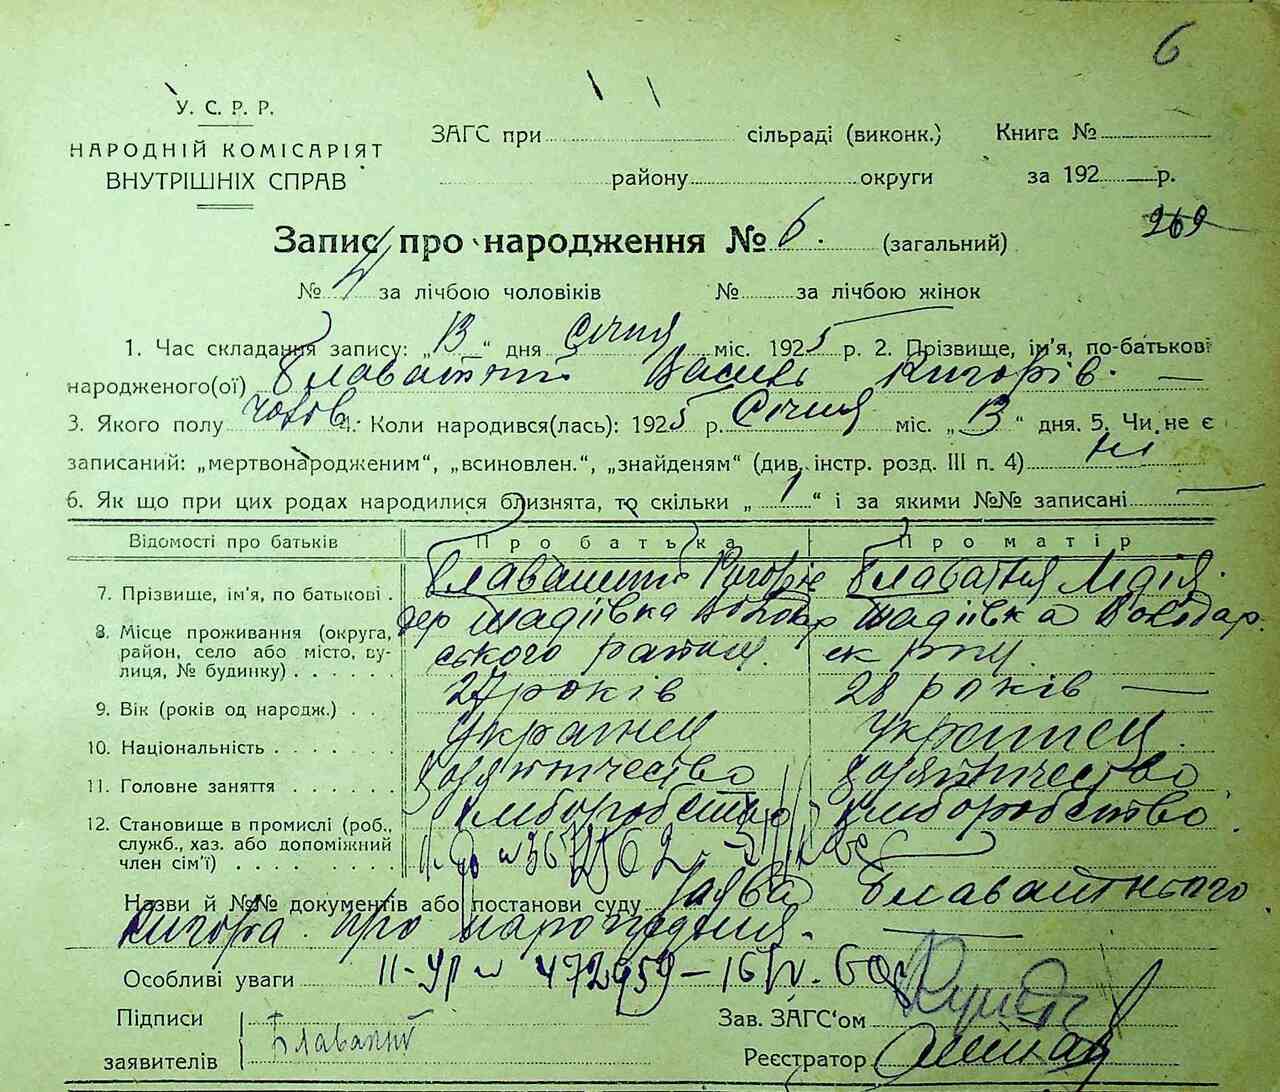 6
У. С. Р. Р.
НАРОДНІЙ КОМІСАРІЯТ
ВНУТРІШНІХ СПРАВ
ЗАГС при сільраді (виконк.) Книга №
району округи за 192 р.
269
Запис про народження № 6. (загальний)
№ 4 за лічбою чоловіків № за лічбою жінок
1. Час складання запису: „13“ дня Січня міс. 1925 р. 2. Прізвище, ім'я, по-батькові
народженого(ої) Блаватний Василь Григорів. —
3. Якого полу чолов. 4. Коли народився(лась): 1925 р. Січня міс. „13“ дня. 5. Чи не є
записаний: „мертвонародженим“, „всиновлен.“, „знайденям“ (див. інстр. розд. III п. 4) Ні
6. Як що при цих родах народилися близнята, то скільки „1“ і за якими №№ записані —
Відомості про батьків Про батька Про матір
7. Прізвище, ім'я, по батькові . Блаватний Григорій Блаватня Лідія.
8. Місце проживання (округа, район, село або місто, вулиця, № будинку) . . . . . . дер Надіївка Надіївка
9. Вік (років од народж.) . . 27 років 28 років —
10. Національність . . . . . . . Українец Украинец.
11. Головне заняття . . . . . .
12. Становище в промислі (роб., служб., хаз. або допоміжний член сім'ї) . . . . . . . . хліборобство хліборобство.
Назви й №№ документів або постанови суду Заява Блаватнього
Григора про народження. —
Особливі уваги II-УР № 472959 — 16/IV
Підписи
заявителів Блаватний
Зав. ЗАГС'ом
Реєстратор